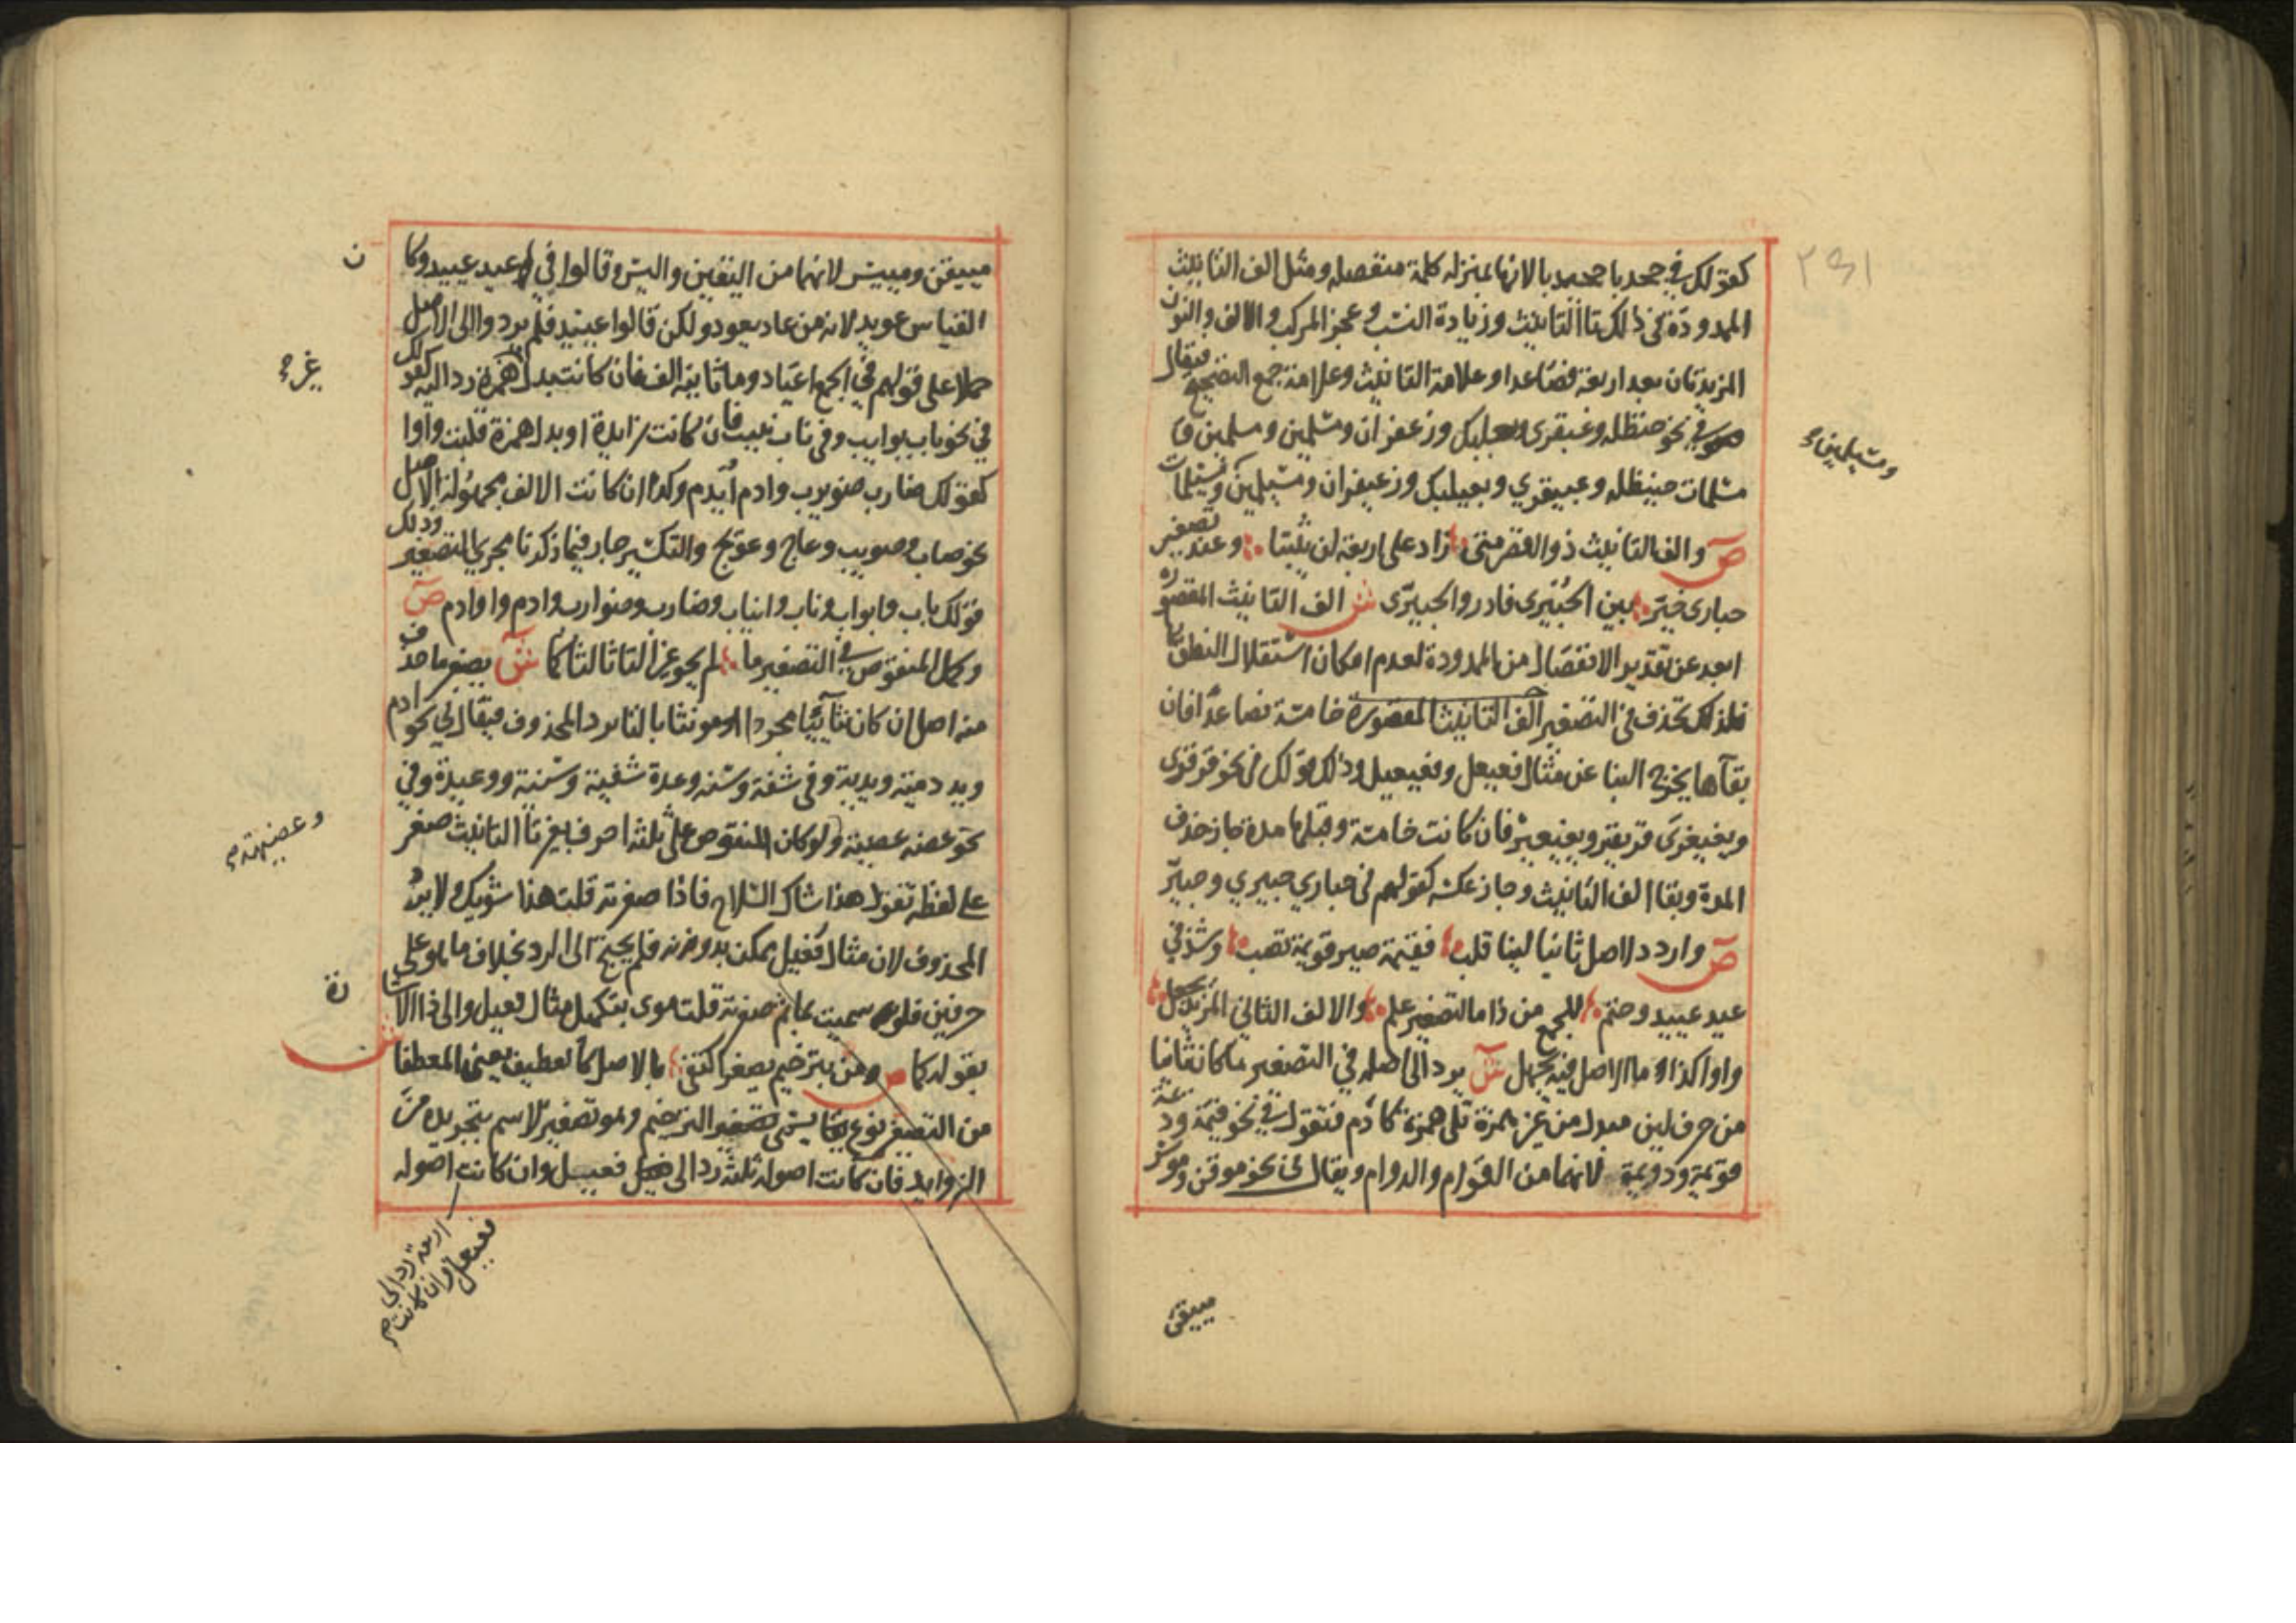 كقولك في جحدبا جحيدبا لانها بمنزله كلمة منفصله ومثل الف التانيث
الممدودة في ذلك تا التانيث وزيادة النسب وعجز المركب والالف والنون
المزيدتان بعد اربعة فصاعدا وعلامة التانيث وعلامة جمع التصحيح فيقال
في نحو حنظله وعبقري وبعلبك وزعفران ومسلمين ومسلمين و
مسلمات حنيظله وعبيقري وبعيلبك وزعيفران ومسيلمين ومسيلمات
ومسيلمين
ص والف التانيث ذو القصر متى زاد على اربعة لن يثبتا وعند تصغير
حبارى خير بين الحبيرى فادر والحبيرّى ش الف التانيث المقصوره
ابعد عن تقدير الانفصال من الممدودة لعدم امكان استقلال النطق بها
فلذلك تحذف في التصغير الف التانيث المقصورة خامسة فصاعدا فان
بقآها يخرج البنا عن مثال فعيعل وفعيعيل وذلك قولك في نحو قرقرى
ولغيغزى قريقر ولغيغيز فان كانت خامسة وقبلها مدة جاز حذف
المدة وبقا الف التانيث وجاز عكسه كقولهم في حباري حبيري وحبيّر
ص واردد لاصل ثانيا لينا قلب فقيمة صير قويمة تصب وشذ في
عيد عييد وحتم للجمع من ذا ما لتصغير علم والالف الثاني المزيد يجعل
واوا كذا ما الاصل فيه يجهل ش يرد الى اصله في التصغير ما كان ثانيا
من حرف لين مبدل من غير همزة تلي همزة كآدم فتقول في نحو قيمة وديمة
قويمة ودويمة لانهما من القوام والدوام ويقال في نحو موقن وموسر
مييقن
مييقن ومييسر لانهما من اليقين واليسر وقالوا في عيد عييد وكان
القياس عويد لانه من عاد يعود ولكن قالوا عييد فلم يردوا الى الاصل
حملا على قولهم في الجمع اعياد وما ثانيه الف فان كانت بدل غير همزة رد اليه كقولك
في نحو باب بويب وفي ناب نييب فان كانت زايدة او بدل همزة قلبت واوا
كقولك ضارب ضويرب وادم أيدم وكذا ان كانت الالف مجهولة الاصل
نحو صاب وصويب وعاج وعويج والتكسير جار فيما ذكرنا مجرى التصغير وذلك
قولك باب وابواب وناب وانياب وضارب وضوارب وادم واوادم ص
وكمل المنقوص في التصغير ما لم يحو غير التا ثالثا كما ش يصغر ما حذف
منه اصل ان كان ثنائيا مجردا او مونثا بالتا برد المحذوف فيقال في نحو دم
ويد دمية ويدية وفي شفة وسنه وعدة شفيهة وسنية ووعيدة وفي
نحو عضه عضيهة ولو كان المنقوص على ثلثة احرف بغير تا التانيث صغر
على لفظه تقول هذا شاك السلاح فاذا صغرته قلت هذا شويك ولا يرد
المحذوف لان مثال فعيل يمكن بدونه فلم يحتج الى الرد بخلاف ما هو على
حرفين فلو سميت بما ثم صغرته قلت موى بتكميل مثال فعيل والى ذا الاشارة
بقوله كما ص ومن بترخيم يصغر اكتفى بالاصل كالعطيف يعني المعطفا ش
من التصغير نوع يسمى تصغير الترخيم وهو تصغير الاسم بتجريده من
الزوايد فان كانت اصوله ثلثة رد الى فعيل وان كانت اصوله
اربعة رد الى
فعيعل وان كانت